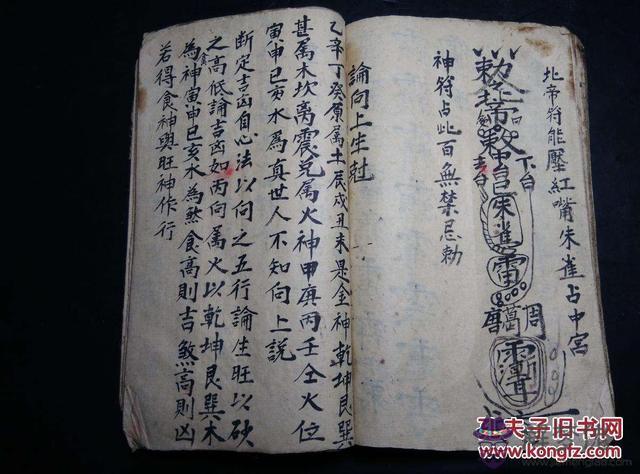 北帝符能壓紅嘴朱雀占中宮
勅令北帝敕中台朱雀雷
下台
唐葛周
神符占此百無禁忌勅
論向上生尅
乙辛丁癸原属土辰戌丑未是金神乾坤艮巽
甚属木坎离震兑属火神甲庚丙壬仝火位
寅申巳亥水爲真世人不知向上說
断定吉凶自心法以向之五行論生旺以砂
之高低論吉凶如丙向属火以乾坤艮巽木
為食神寅申巳亥水為煞食高則吉煞高則凶
若得食神與旺神作行
孔夫子旧书网
kongfz.com